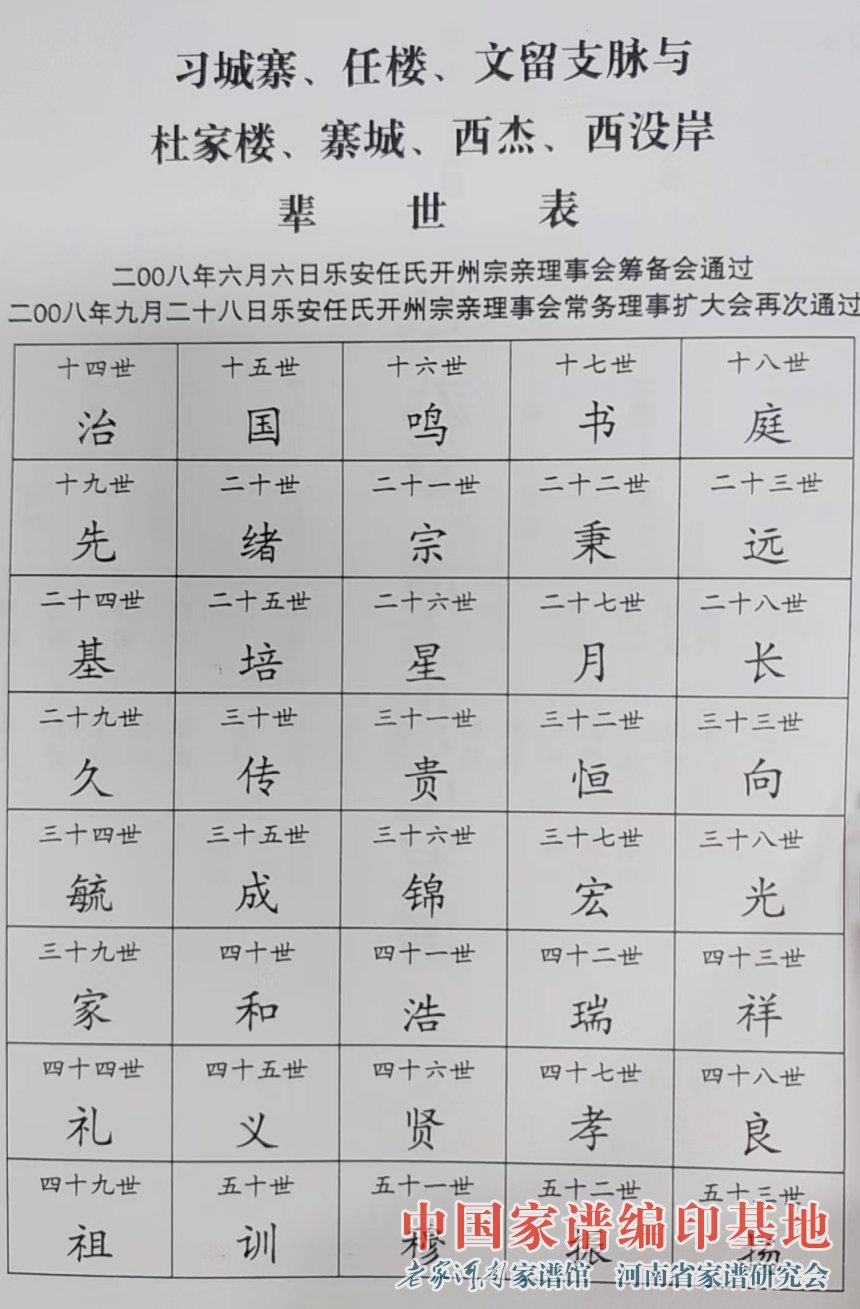 习城寨、任楼、文留支脉与
杜家楼、寨城、西杰、西没岸
辈 世 表
二00八年六月六日乐安任氏开州宗亲理事会筹备会通过
二00八年九月二十八日乐安任氏开州宗亲理事会常务理事扩大会再次通过
十四世 十五世 十六世 十七世 十八世
治 国 鸣 书 庭
十九世 二十世 二十一世 二十二世 二十三世
先 绪 宗 秉 远
二十四世 二十五世 二十六世 二十七世 二十八世
基 培 星 月 长
二十九世 三十世 三十一世 三十二世 三十三世
久 传 贵 恒 向
三十四世 三十五世 三十六世 三十七世 三十八世
毓 成 锦 宏 光
三十九世 四十世 四十一世 四十二世 四十三世
家 和 浩 瑞 祥
四十四世 四十五世 四十六世 四十七世 四十八世
礼 义 贤 孝 良
四十九世 五十世 五十一世 五十二世 五十三世
祖 训 穆 振 扬
中国家谱编印基地
老家河南家谱馆 河南省家谱研究会